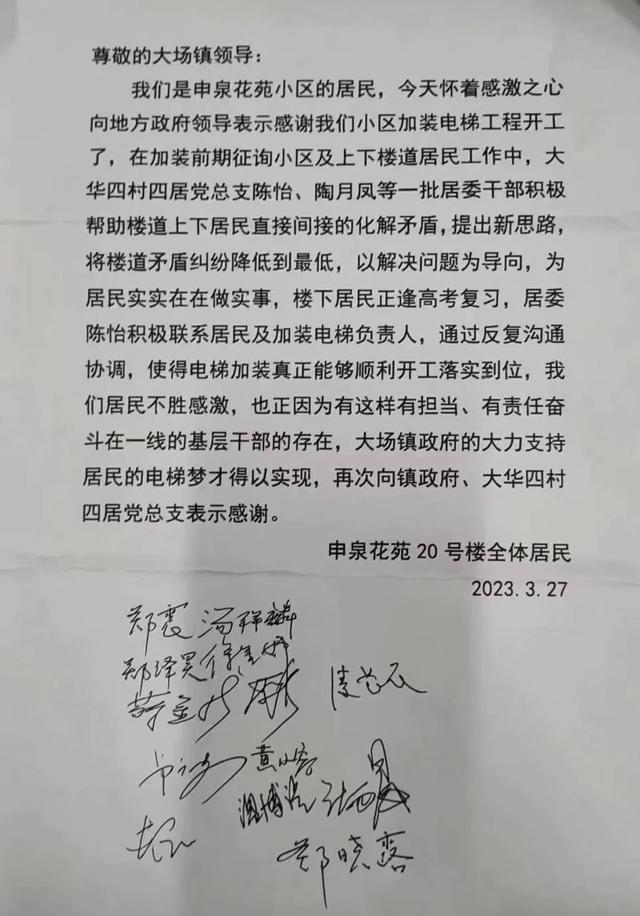 尊敬的大场镇领导：
我们是申泉花苑小区的居民，今天怀着感激之心
向地方政府领导表示感谢我们小区加装电梯工程开工
了，在加装前期征询小区及上下楼道居民工作中，大
华四村四居党总支陈怡、陶月凤等一批居委干部积极
帮助楼道上下居民直接间接的化解矛盾，提出新思路，
将楼道矛盾纠纷降低到最低，以解决问题为导向，为
居民实实在在做实事，楼下居民正逢高考复习，居委
陈怡积极联系居民及加装电梯负责人，通过反复沟通
协调，使得电梯加装真正能够顺利开工落实到位，我
们居民不胜感激，也正因为有这样有担当、有责任奋
斗在一线的基层干部的存在，大场镇政府的大力支持
居民的电梯梦才得以实现，再次向镇政府、大华四村
四居党总支表示感谢。
申泉花苑 20 号楼全体居民
2023.3.27
郑震
郑晓露